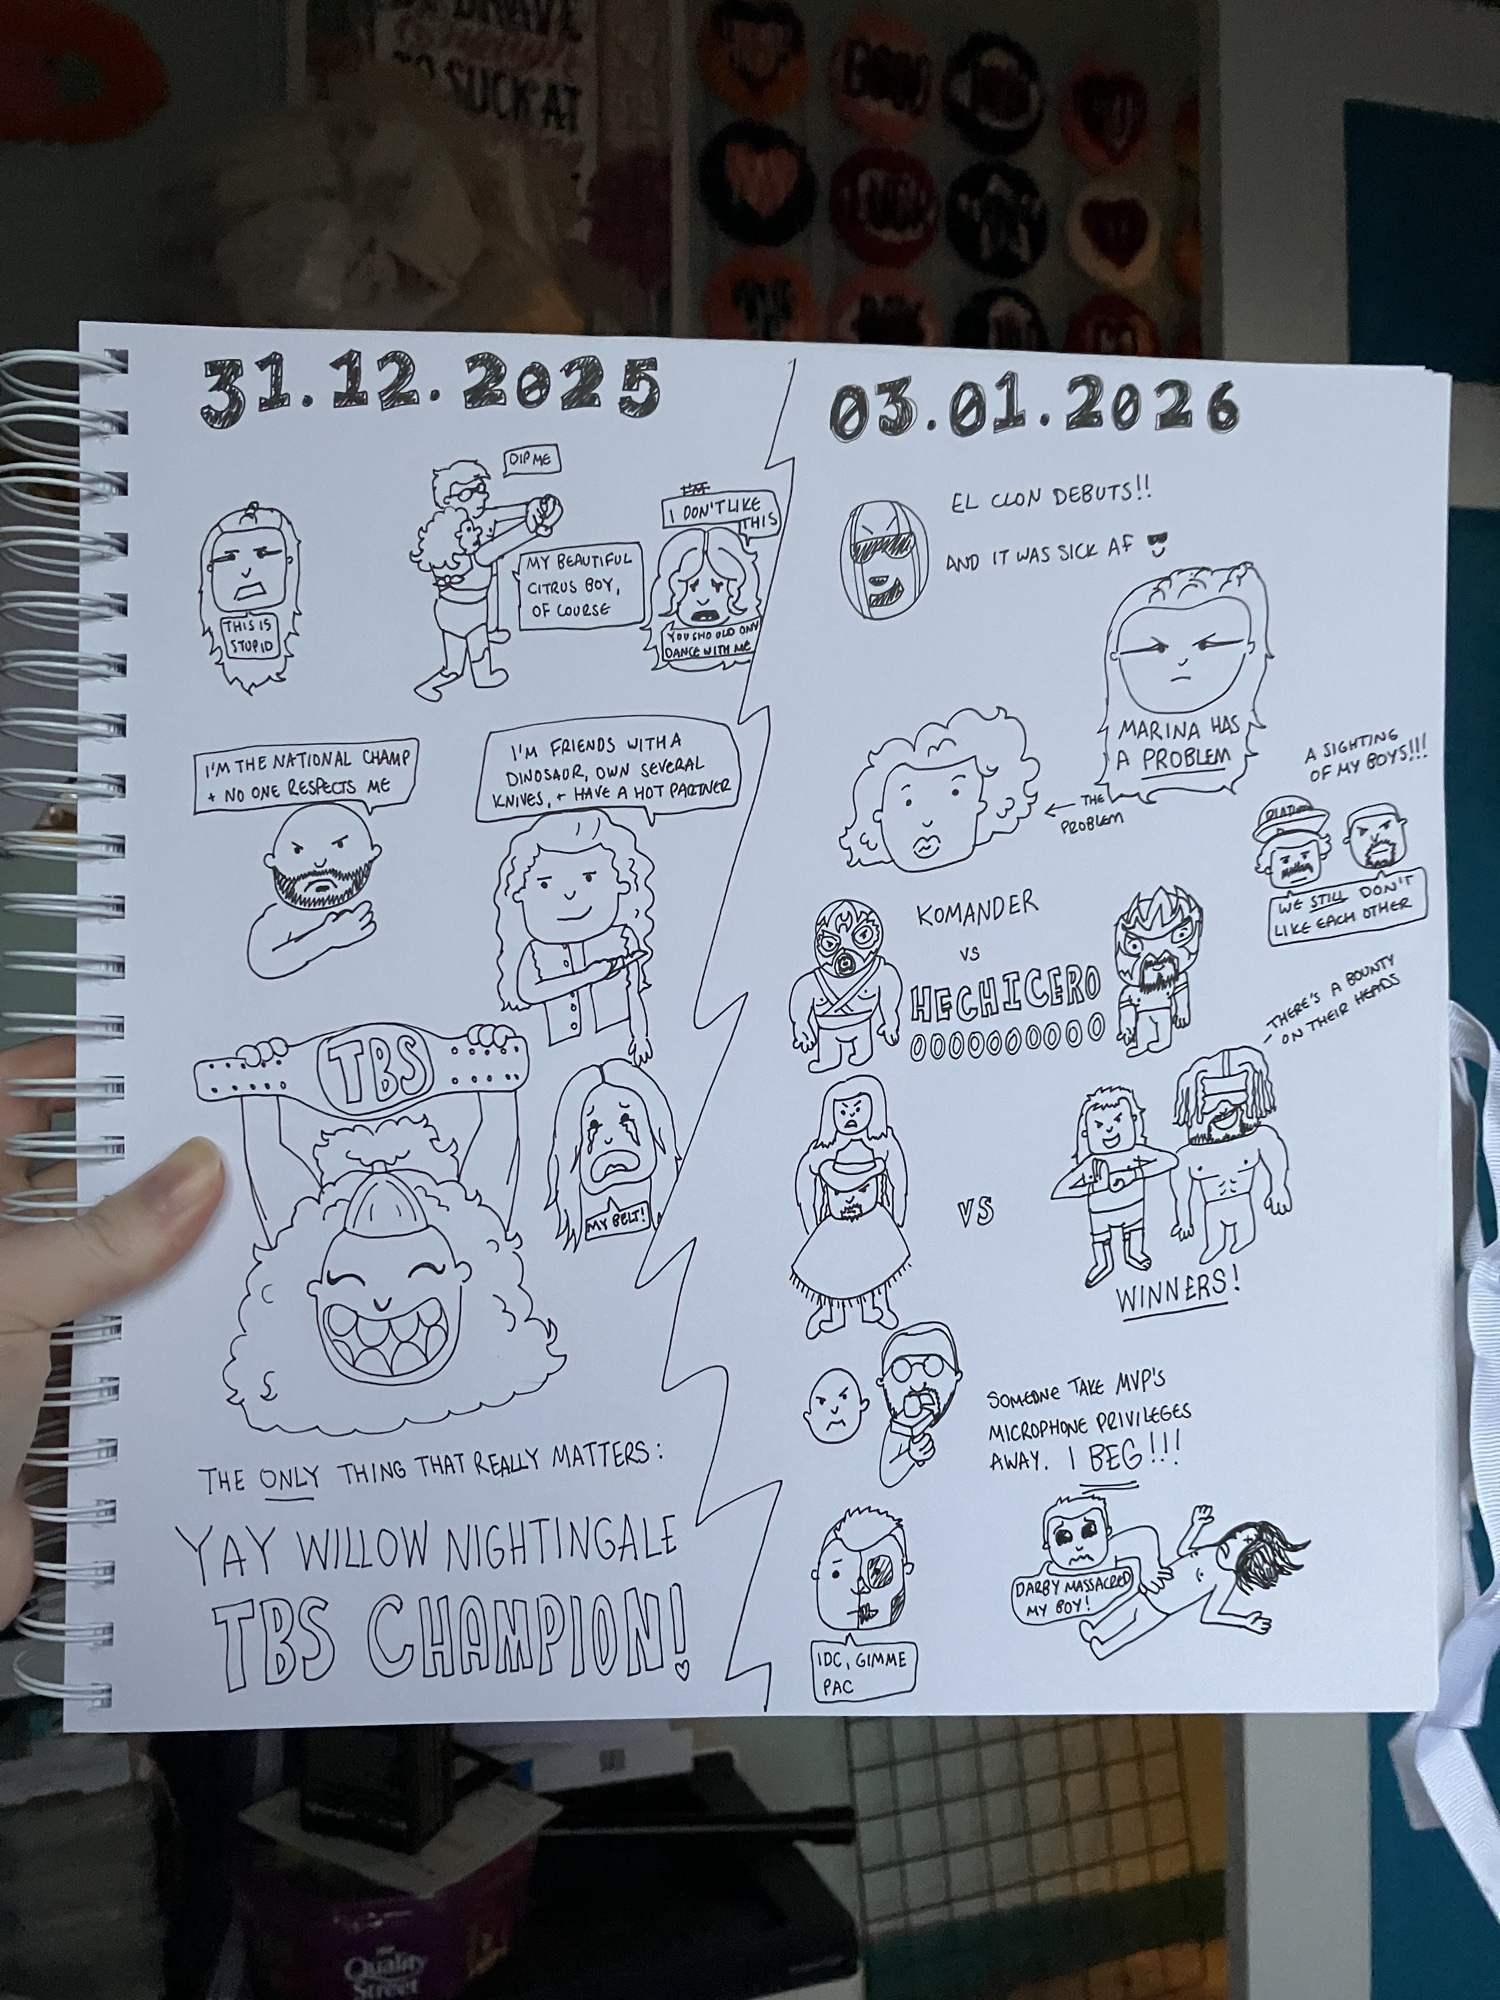 BRAVE
TO SUCK AT
31.12.2025
DIP ME
MY BEAUTIFUL
CITRUS BOY,
OF COURSE
I'M
I DON'T LIKE
THIS
YOU SHOULD ONLY
DANCE WITH ME
THIS IS
STUPID
I'M THE NATIONAL CHAMP
+ NO ONE RESPECTS ME
I'M FRIENDS WITH A
DINOSAUR, OWN SEVERAL
KNIVES, + HAVE A HOT PARTNER
TBS
MY BELT!
THE ONLY THING THAT REALLY MATTERS:
YAY WILLOW NIGHTINGALE
TBS CHAMPION!
03.01.2026
EL CLON DEBUTS!!
AND IT WAS SICK AF
MARINA HAS
A PROBLEM
← THE
PROBLEM
A SIGHTING
OF MY BOYS!!!
WE STILL DON'T
LIKE EACH OTHER
KOMANDER
VS
HECHICERO
OOOOOOOOOO
THERE'S A BOUNTY
ON THEIR HEADS
VS
WINNERS!
SOMEONE TAKE MVP'S
MICROPHONE PRIVILEGES
AWAY. I BEG!!!
IDC, GIMME
PAC
DARBY MASSACRED
MY BOY!
Quality
Street